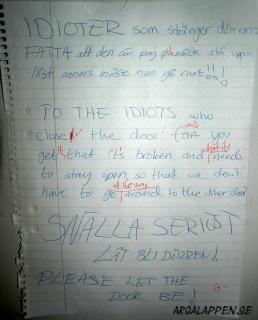 IDIOTER som stänger dörren:
FATTA att den är paj och måste stå upp-
låst annars måste man gå runt!!!
TO THE IDIOTS who
close the door: Can (not) you
get it that it's broken and needs
to stay open, so that we don't
have to go all the way around to the other door
SNÄLLA SERIÖST
LÅT BLI DÖRREN!
PLEASE LET THE
DOOR BE!
G-
ARGALAPPEN.SE